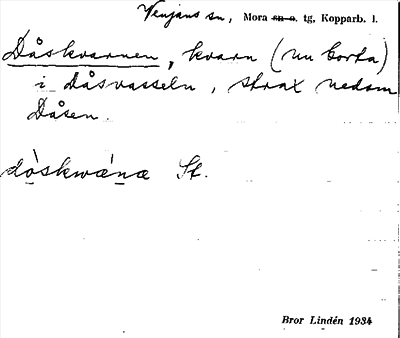 Venjans sn, Mora sn o. tg, Kopparb. l.
Dåskvarnen, kvarn (nu borta)
i Dåsvasseln, strax nedom
Dåsen.
dò̱skwá̱næ St.
Bror Lindén 1934